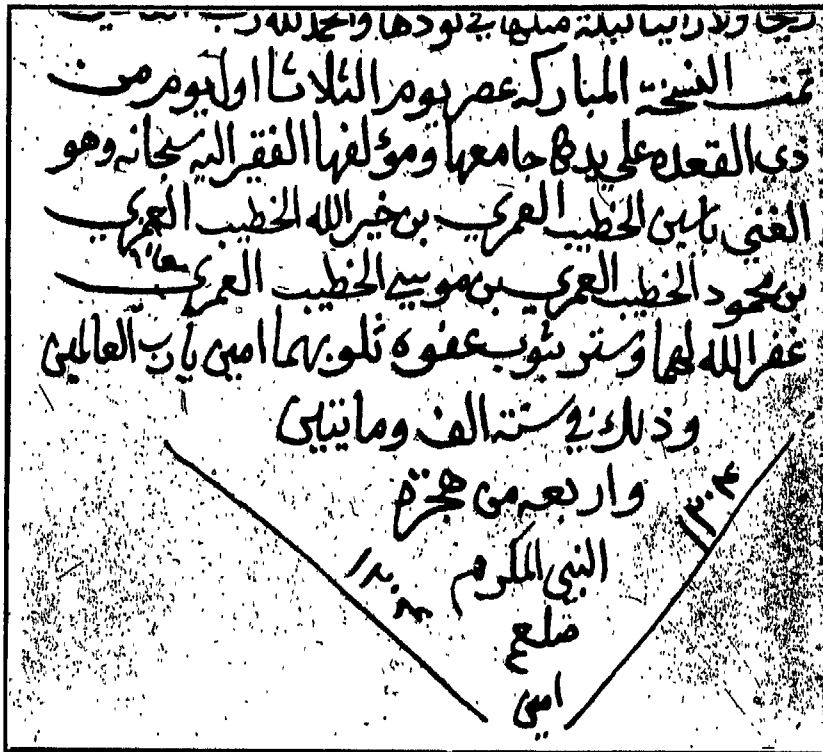 ريحا ولا رأينا ليلة مثلها في نودها والحمد لله رب
تمت النسخة المباركه عصر يوم الثلاثا اول يوم من
ذي القعده على يد جامعها ومؤلفها الفقير اليه سبحانه وهو
الغني ياسين الخطيب العمري بن خير الله الخطيب العمري
بن محمود الخطيب العمري بن موسى الخطيب العمري
غفر الله لهما وستر بثوب عفوه ذنوبهما امين يا رب العالمين
وذلك في سنة الف وماتيين
واربعه من هجرة
النبي المكرم
صلعم
امين
١٢٠٤
١٢٠٤